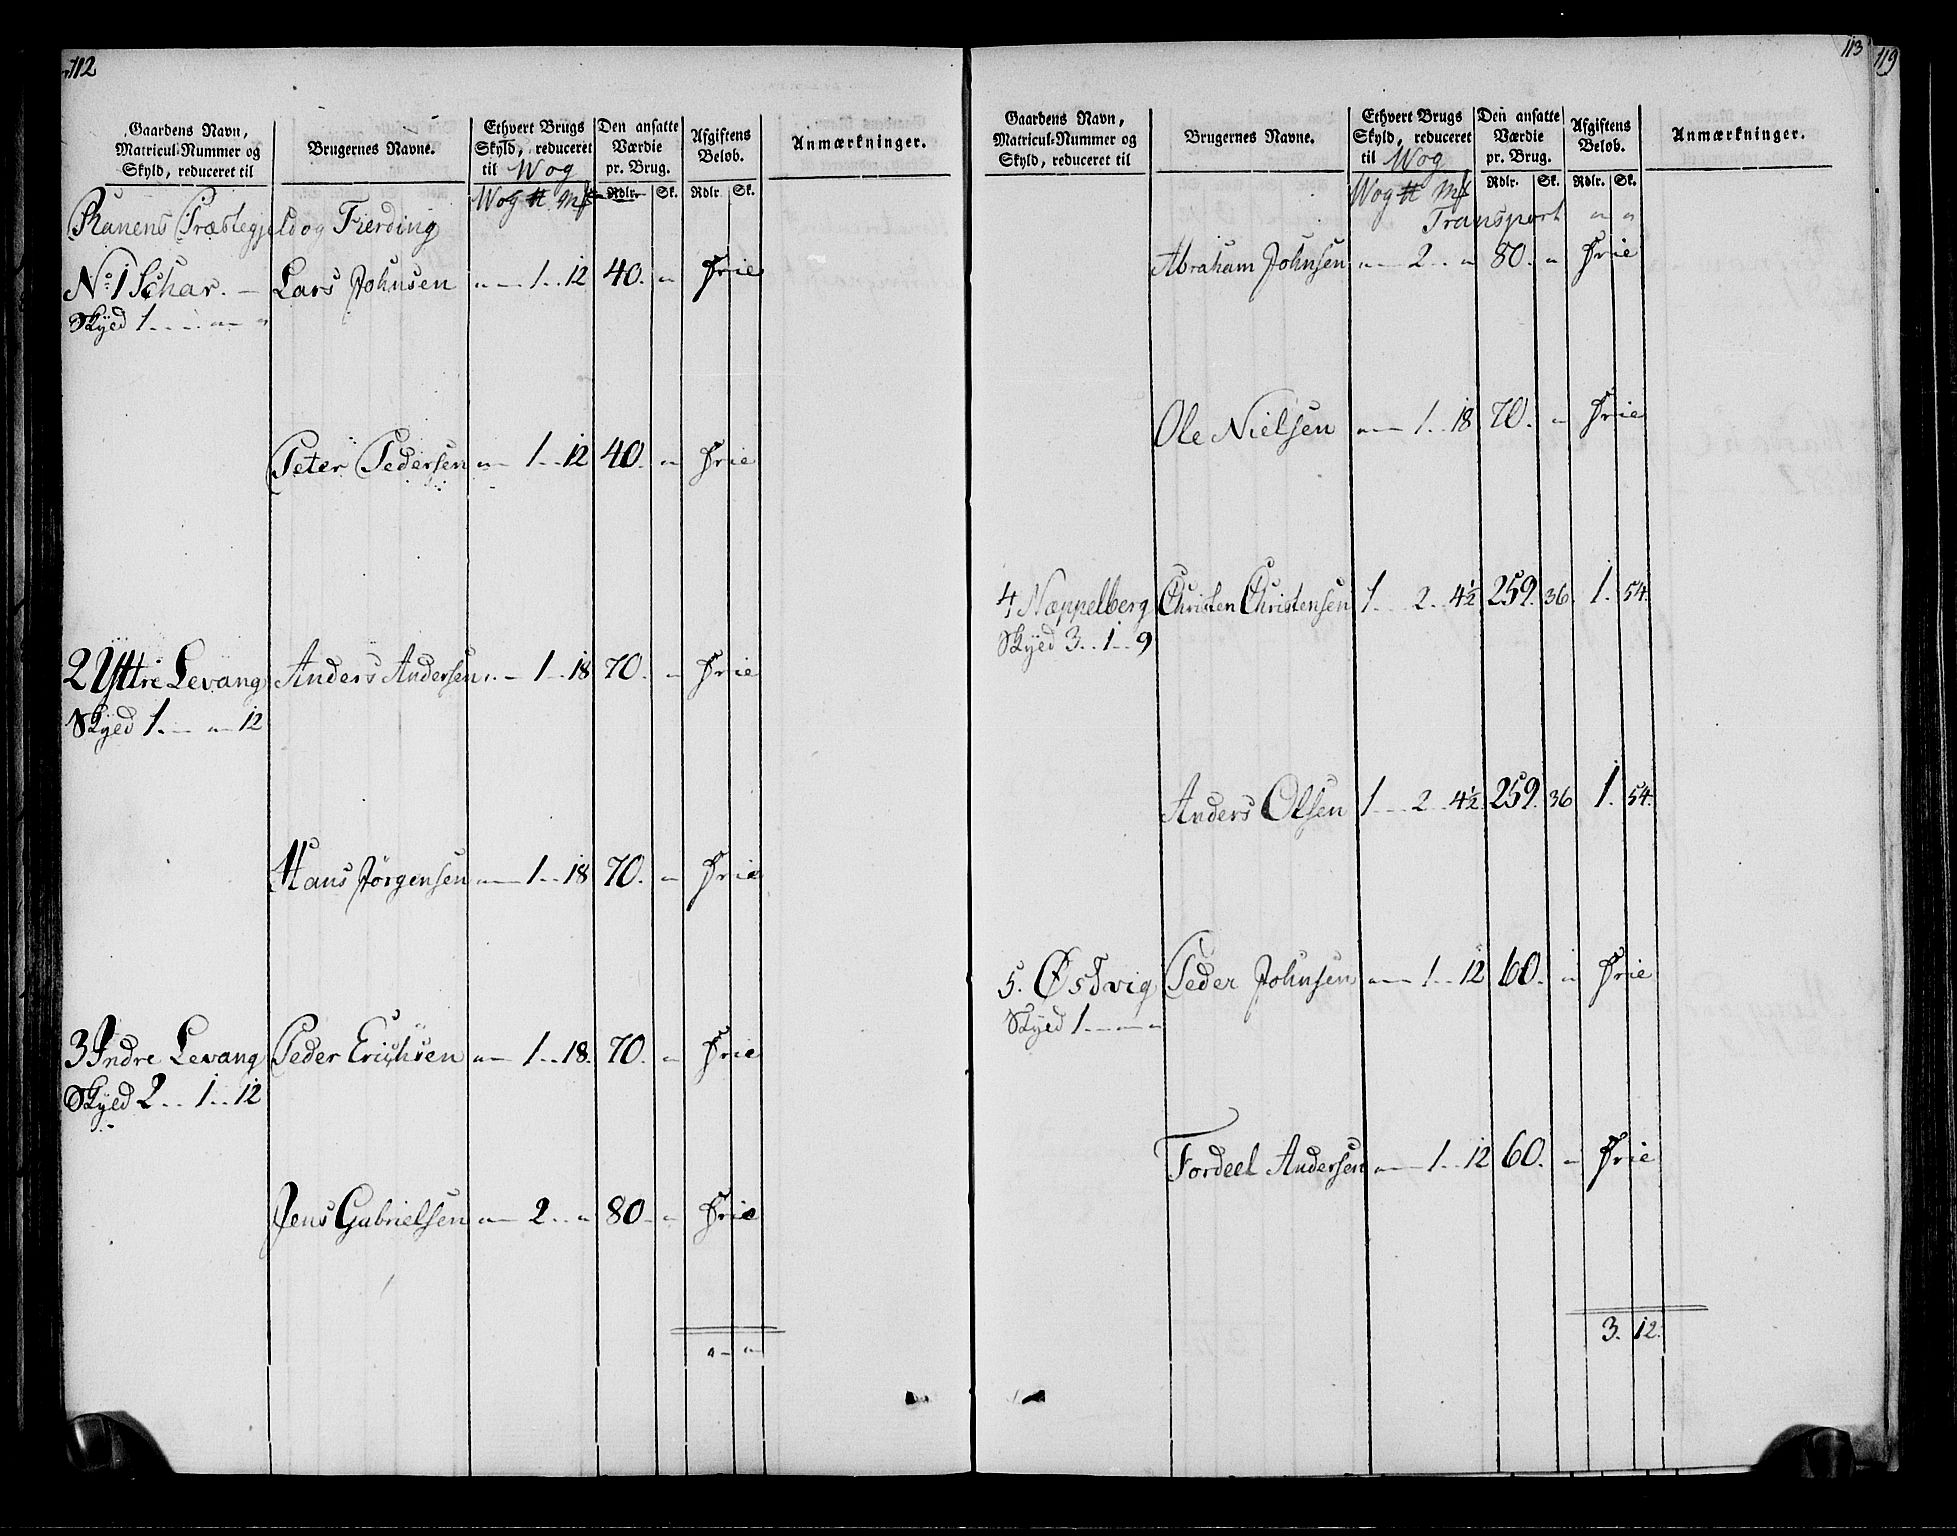 112
Gaardens Navn, Matricul-Nummer og Skyld, reduceret til | Brugernes Navne. | Ethvert Brugs Skyld, reduceret til Wog | Den ansatte Værdie pr. Brug. | Afgiftens Beløb. | Anmærkninger.
Wog ℔ Mk | Rdlr. | Sk. | Rdlr. | Sk.
Ranens Præstegjeld og Fierding
No 1 Schar. — Lars Johnsen " — 1 .. 12 40. " Frie
Skyed 1 — " — "
Peter Pedersen " — 1 .. 12 40. " Frie
2 Yttre Levang Anders Andersen " — 1 .. 18 70. " Frie
Skyed 1. — " — 12
Hans Jørgensen " — 1 .. 18 70. " Frie
3 Indre Levang Peder Erichsen " — 1 .. 18. 70. " Frie
Skyed 2 .. 1 .. 12
Jens Gabrielsen " — 2 .. " 80 - " Frie
" — "
113
119
Gaardens Navn, Matricul-Nummer og Skyld, reduceret til | Brugernes Navne. | Ethvert Brugs Skyld, reduceret til Wog | Den ansatte Værdie pr. Brug. | Afgiftens Beløb. | Anmærkninger.
Wog ℔ Mk | Rdlr. | Sk. | Rdlr. | Sk.
Transport " "
Abraham Johnsen " — 2 .. " 80. " Frie
Ole Nielsen " — 1 .. 18 70. " Frie
4 Næppelberg Christen Christensen 1 — 2 .. 4½ 259. 36. 1. 54.
Skyed 3 .. 1 .. 9
Anders Olsen 1 — 2 — 4½ 259. 36 1. 54.
5. Østvig Peder Johnsen " — 1 .. 12 60. " Frie
Skyed 1 — " — "
Fordeel Andersen " — 1 .. 12 60. " Frie
3. 12.